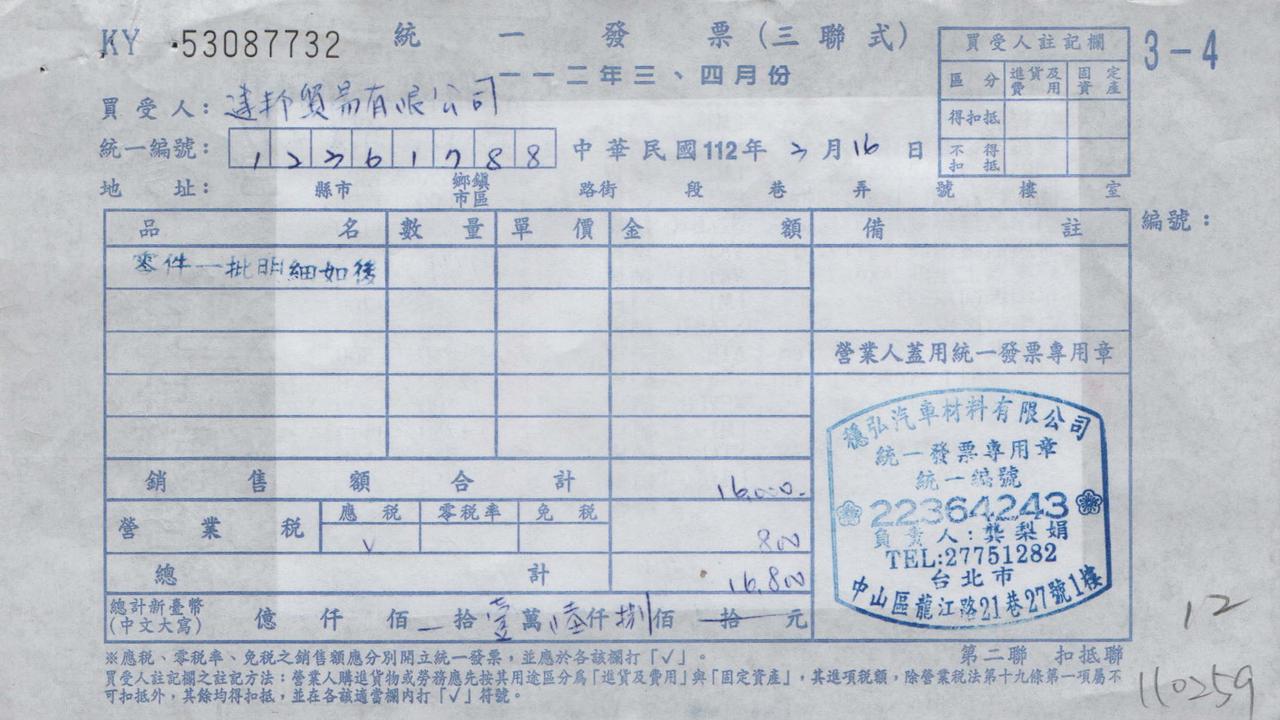 KY 53087732 統一發票(三聯式) 3-4
一一二年三、四月份
買受人註記欄
區分 進貨及費用 固定資產
得扣抵
不得扣抵
買受人: 達邦貿易有限公司
統一編號: 12361788 中華民國112年3月16日
地址: 縣市 鄉鎮市區 路街 段 巷 弄 號 樓 室
品名 數量 單價 金額 備註 編號:
零件一批明細如後
營業人蓋用統一發票專用章
銷售額合計 16,000.
營業稅 應稅 零稅率 免稅
√ 800
總計 16,800
總計新臺幣(中文大寫) 億 仟 佰 拾 壹 萬 陸 仟 捌 佰 拾 元
穩弘汽車材料有限公司
統一發票專用章
統一編號
22364243
負責人:龔梨娟
TEL:27751282
台北市
中山區龍江路21巷27號1樓
12
※應稅、零稅率、免稅之銷售額應分別開立統一發票,並應於各該欄打「√」。 第二聯 扣抵聯
買受人註記欄之註記方法:營業人購進貨物或勞務應先按其用途區分為「進貨及費用」與「固定資產」,其進項稅額,除營業稅法第十九條第一項屬不
可扣抵外,其餘均得扣抵,並在各該適當欄內打「√」符號。
110259